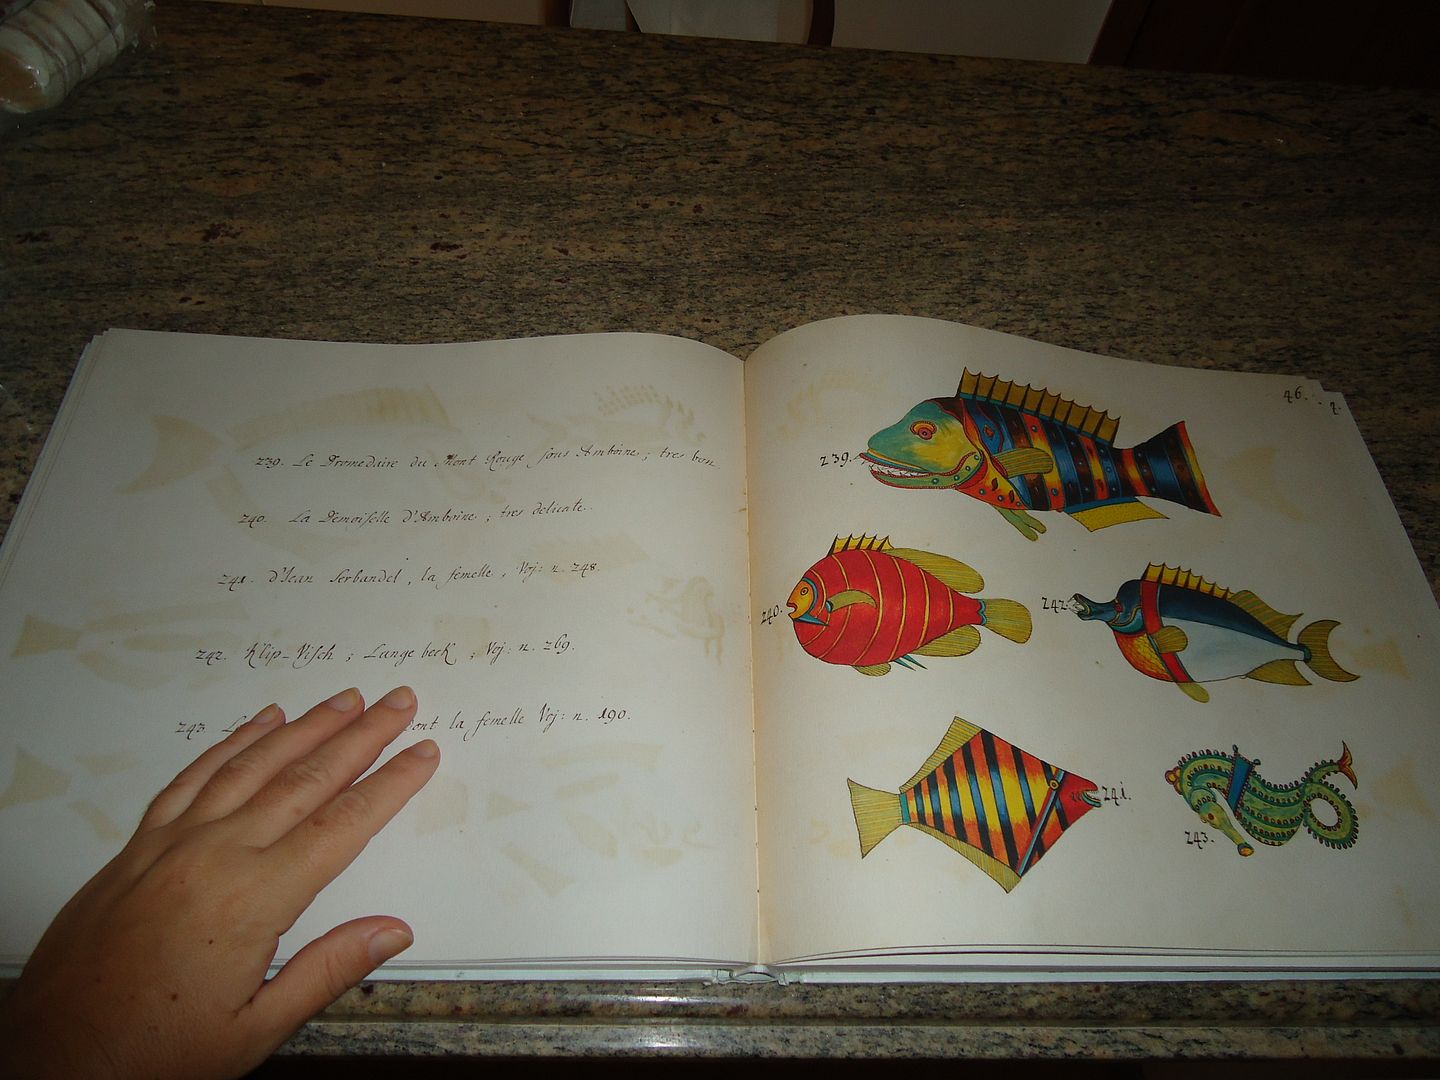 239. Le Dromedaire du Mont Rouge sous Amboine ; tres bon
240. La Demoiselle d'Amboine ; tres delicate.
241. d'Jean Serbandel, la femelle, Voj: n. 248.
242. Klip-Visch ; Lunge beck ; Voj: n. 269.
243. dont la femelle Voj: n. 190.
46.
239.
240.
242
241.
243.